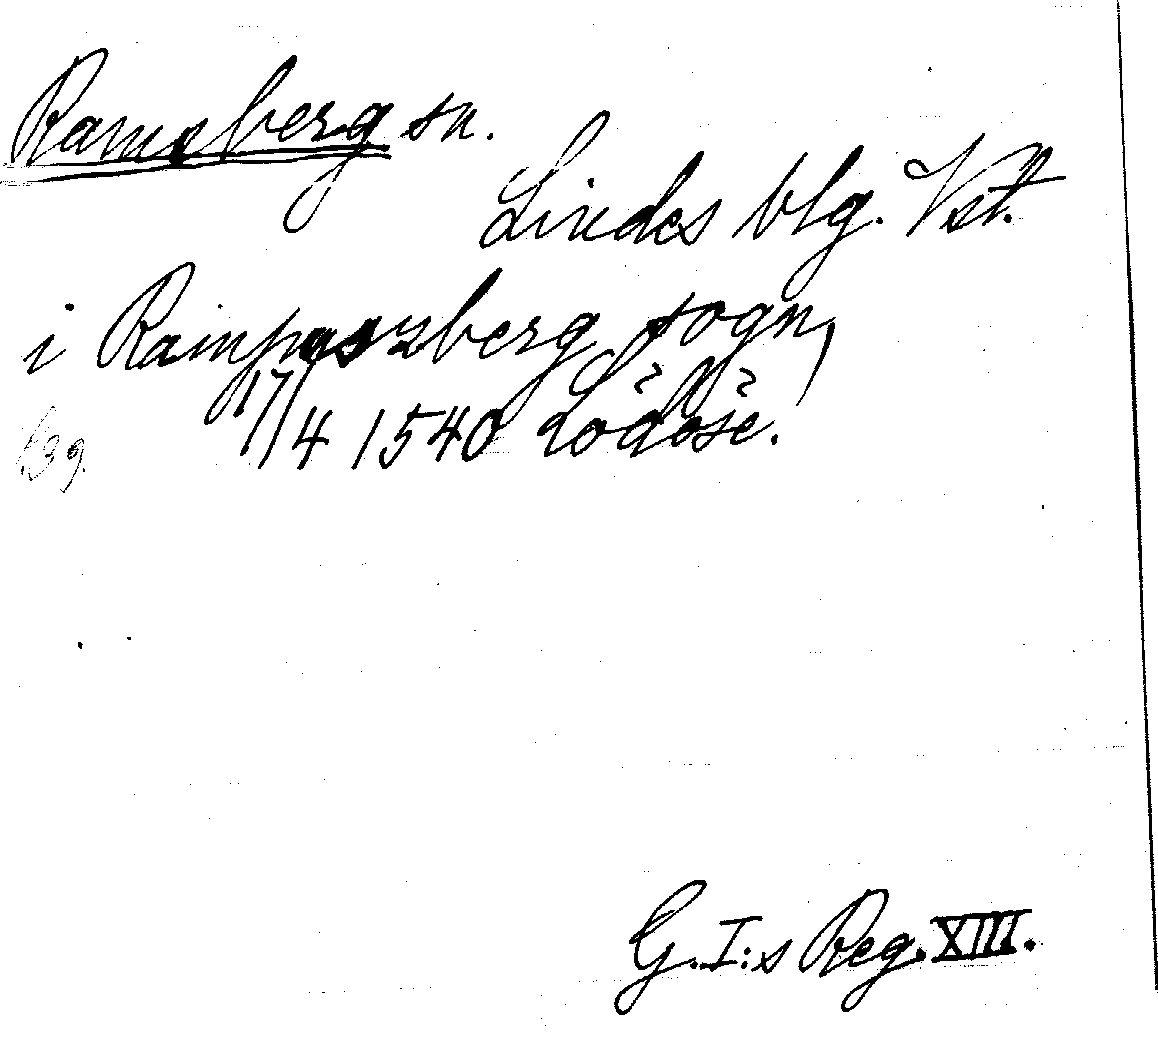 Ramsberg sn.
Lindes blg. Vstm.
i Rampnszberg sogn,
17/4 1540 Lödöse.
G. I:s Reg. XIII.